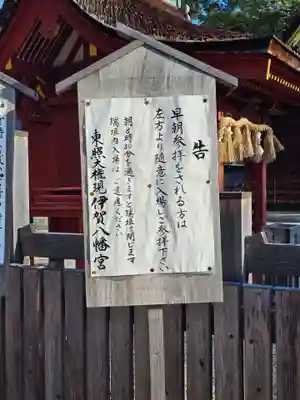 告
早朝参拝をされる方は
左方より随意に入場しご参拝下さい
朝8時30分を過ぎますと瑞垣は閉じます
瑞垣内入場はご遠慮ください
東照大権現伊賀八幡宮